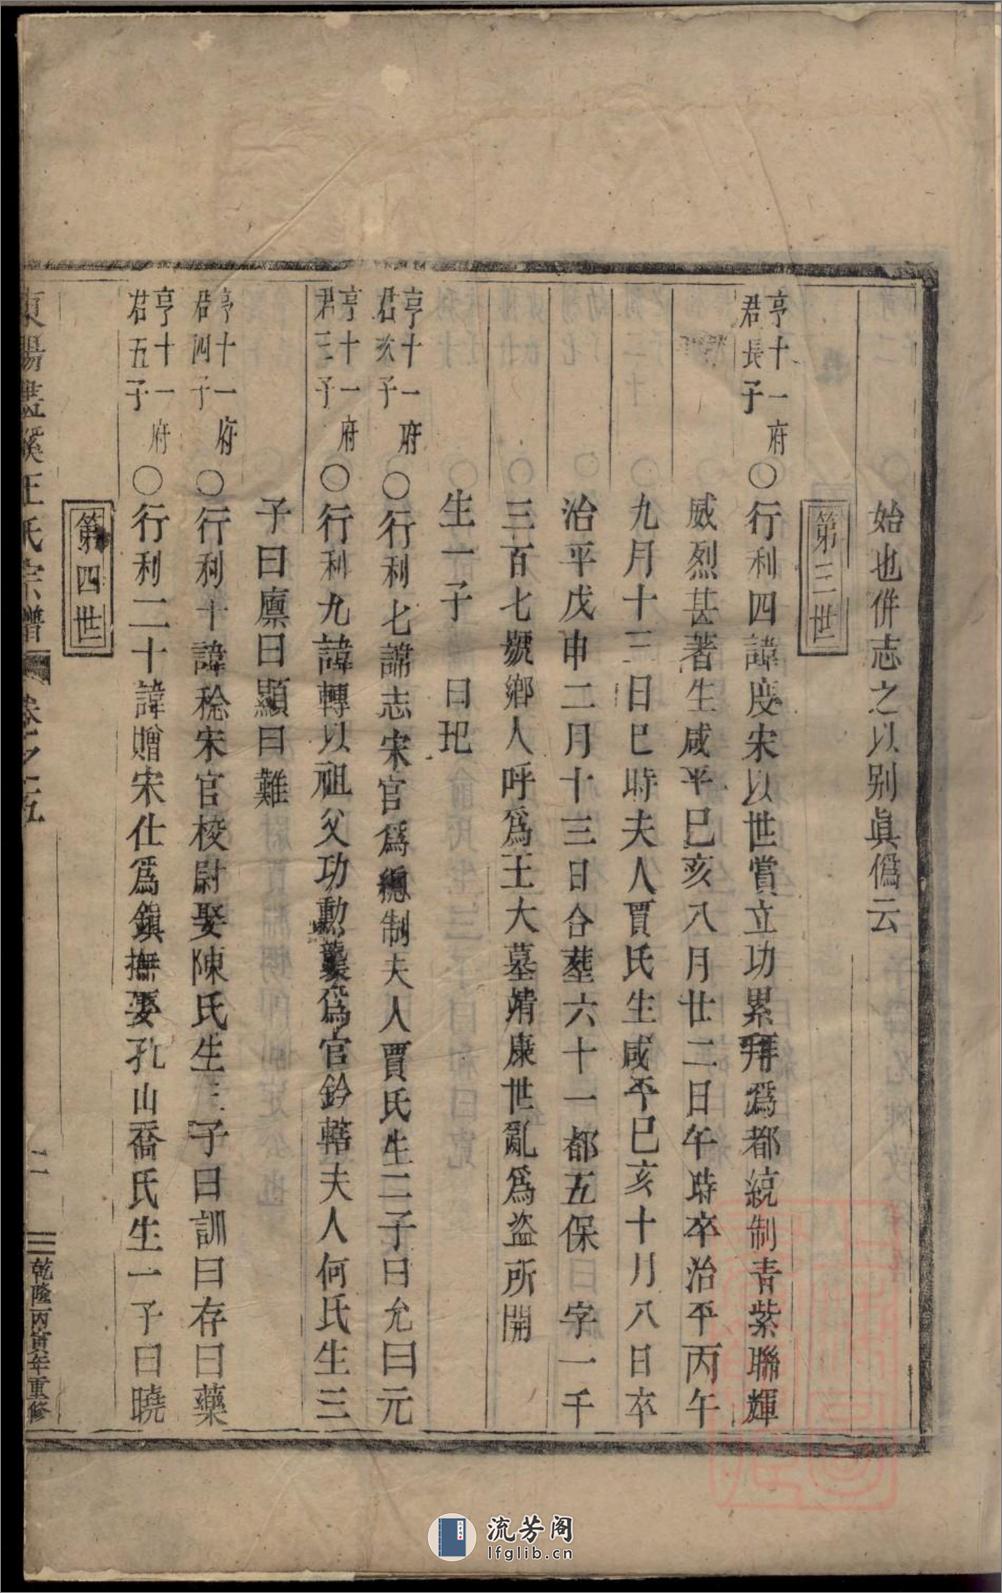 始也併志之以别眞僞云
第三世
亨十一府
君長子
○行利四諱度宋以世賞立功累拜爲都統制青紫聯輝
威烈甚著生咸平己亥八月廿二日午時卒治平丙午
九月十三日巳時夫人賈氏生咸平己亥十月八日卒
治平戊申二月十三日合塟六十一都五保 字一千
三百七號鄉人呼爲王大墓靖康世亂爲盜所開
生一子 曰玘
亨十一府
君次子
○行利七諱志宋官爲總制夫人賈氏生二子曰允曰元
亨十一府
君三子
○行利九諱轉以祖父功勳襲爲官鈐轄夫人何氏生三
子曰廪曰顯曰難
亨十一府
君四子
○行利十諱稔宋官校尉娶陳氏生三子曰訓曰存曰藥
亨十一府
君五子
○行利二十諱贈宋仕爲鎮撫娶孔山喬氏生一子曰曉
第四世
東陽畫溪王氏宗譜 卷之五 二 乾隆丙寅年重修
流芳阁
lfglib.cn